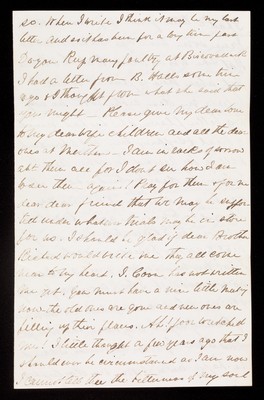 so. When I write I think it may be my last
letter and so it has been for a long time past
I had a letter from B. Hall some time
ago & I thought from what she said that
you might Please give my dear love
to my dear children and all the dear
ones at I am in sacks of sorrow
abt them all for I dont see how I am
to see them again. Pray for them & for me
dear dear friend that we may be suppor
ted under whatever trials may be in store
for us. I should be glad if dear Brother
Richard would write me they all come
near to my heart. J. Coon has not written
me yet. You must have a nice little meetg
now the old ones are gone and new ones are
filling up their places. Ah! poor wretched
me! I little thought a few years ago that I
should ever be circumstanced as I am now
I cannot tell thee the bitterness of my soul